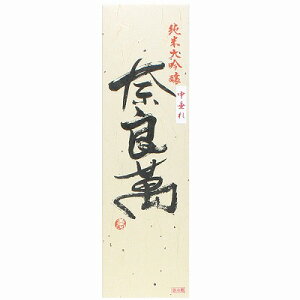 純米大吟醸
中垂れ
奈良萬